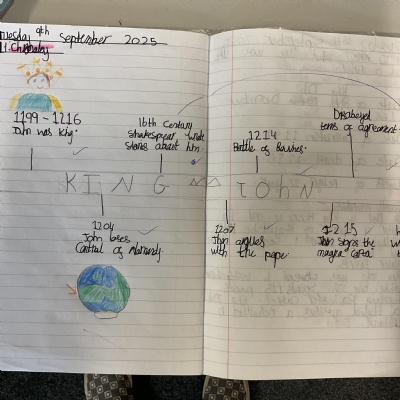 Tuesday 9th September 2025
1199 - 1216
John was King.
16th Century
Shakespear wrote
stories about him
1214
Battle of
Disobeyed
terms of agreement
KING JOhN
1204
John loses
Control of Normandy.
1207
John argues
with the pope.
1215
John signs the
magna carta